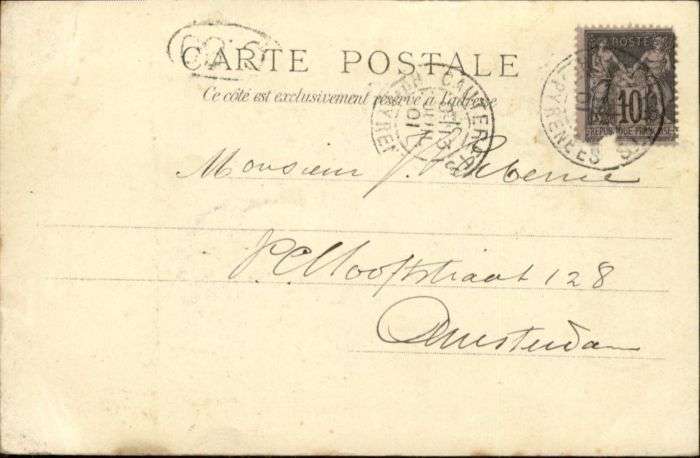 CARTE POSTALE
Ce côté est exclusivement réservé à l'adresse
POSTE
10
REPUBLIQUE FRANÇAISE
CAUTERETS
13
JUIN
01
PYRENEES
Monsieur J.
P.C. Hooftstraat 128
Amsterdam